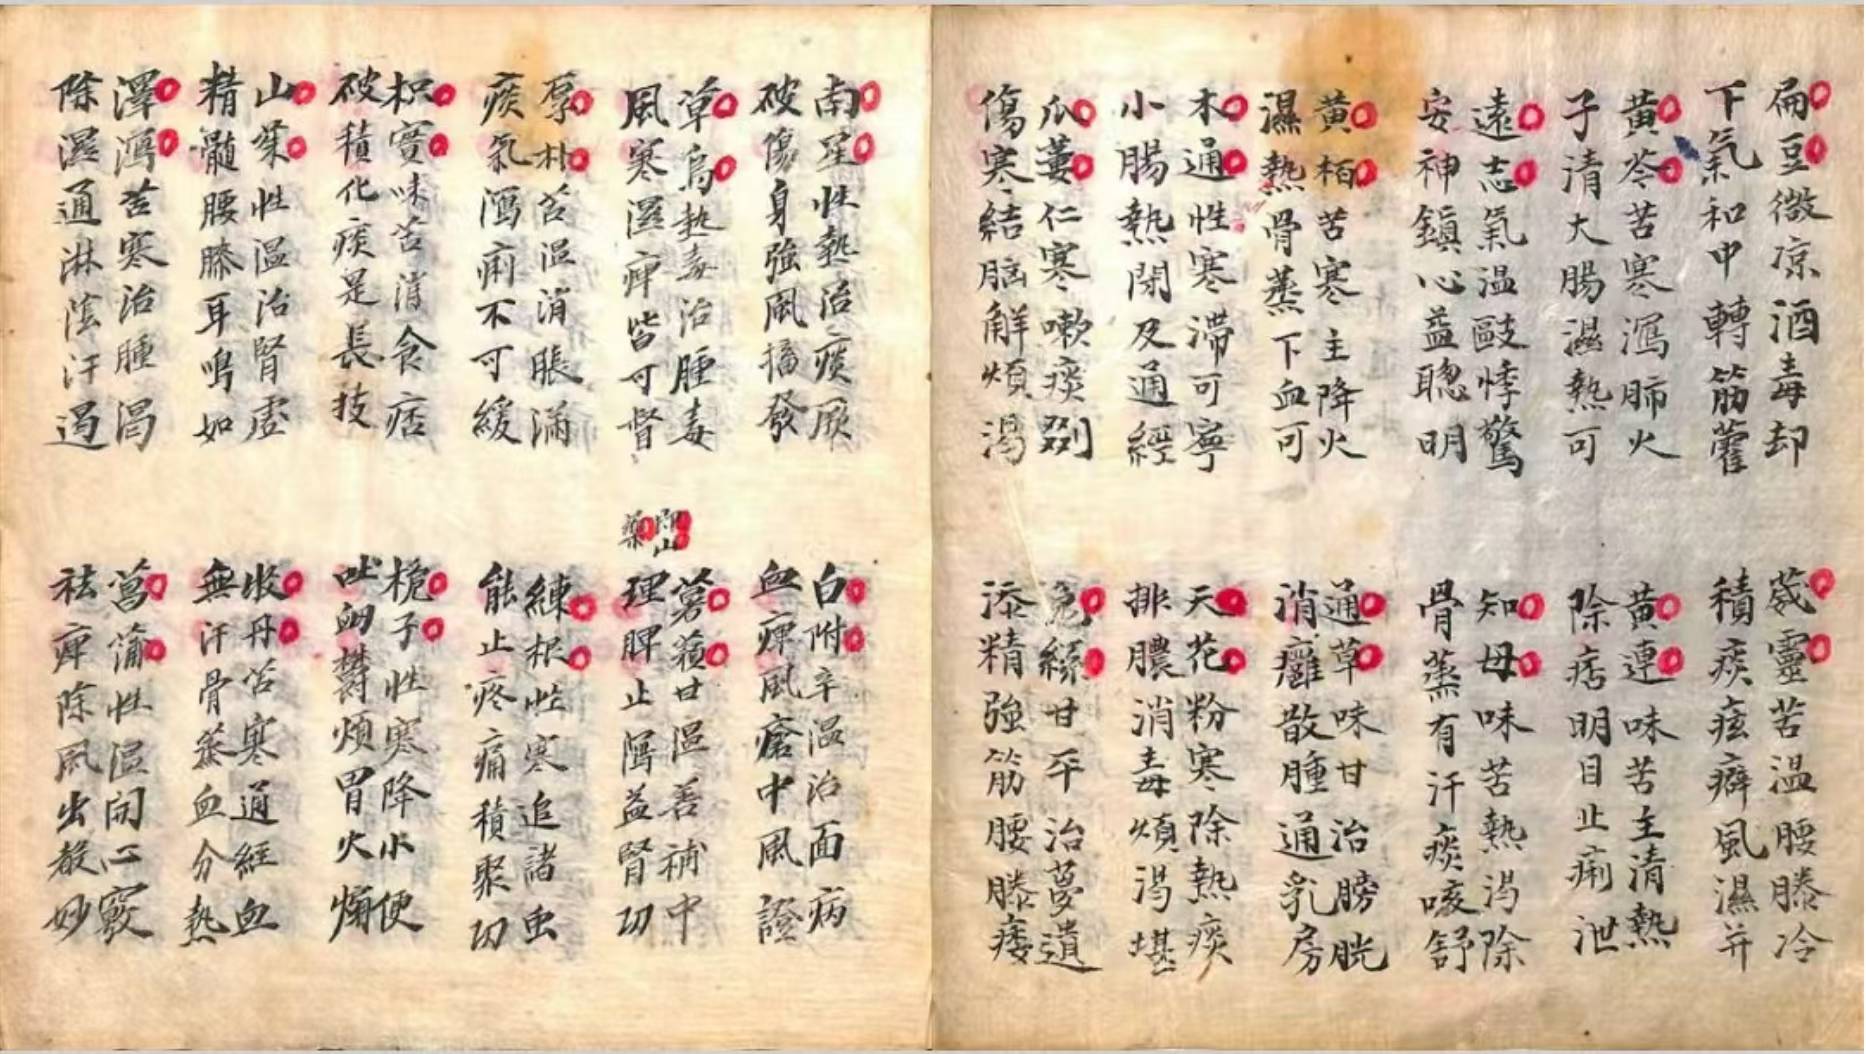 扁豆微凉酒毒却
下氣和中轉筋藿
黃芩苦寒瀉肺火
子清大腸濕熱可
遠志氣温敺悸驚
安神鎮心益聰明
黃栢苦寒主降火
濕熱骨蒸下血可
木通性寒滞可寧
小腸熱閉及通經
瓜蔞仁寒嗽痰割
傷寒結胸解煩渴
葳靈苦温腰膝冷
積痰痃癖風濕并
黃連味苦主清熱
除痞明目止痢泄
知母味苦熱渴除
骨蒸有汗痰咳舒
通草味甘治膀胱
消癰散腫通乳房
天花粉寒除熱痰
排膿消毒煩渴堪
兔絲甘平治夢遺
添精強筋腰膝痿
南星性熱治痰厥
破傷身強風搐發
草烏熱毒治腫毒
風寒濕痺皆可督
厚朴苦温消脹滿
痰氣瀉痢不可緩
枳實味苦消食痞
破積化痰是長技
山茱性温治腎虛
精髓腰膝耳鳴如
澤瀉苦寒治腫渴
除濕通淋陰汗遏
白附辛温治面病
血痺風瘡中風證
即山
藥
薯蕷甘温善補中
理脾止瀉益腎功
練根性寒追諸虫
能止疼痛積聚功
梔子性寒降小便
吐衄欝煩胃火煽
牧丹苦寒通經血
無汗骨蒸血分熱
菖蒲性温開心竅
祛痺除風出聲妙